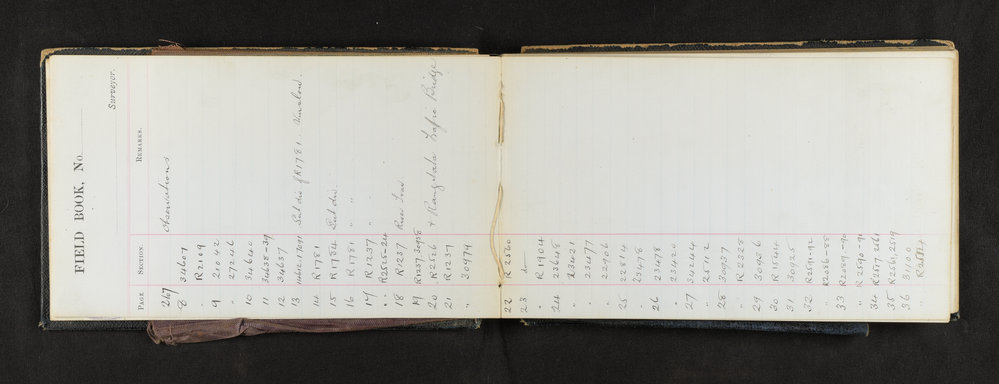 FIELD BOOK, No.
Surveyor.
PAGE SECTION. REMARKS.
267 Observations
8 34607
" R2109
9 21042
" 27246
10 34640
11 34638-39
12 34637
13 17091 Sub div of R1781. Winslow.
14 R1781
15 R1784 Sub div.
16 R1781 " "
17 R1237 "
" R2525-24
18 R1237 River Trav.
19 R1237-30958
20 R2526 + Rangitata Traffic Bridge
21 R1237
" 30974
22 R2560
23 do
" R1904
24 23648
" 23421
" 23477
" 22906
25 22814
26 23478
" 23478
" 23420
27 34244
" 25112
28 30937
" R2228
29 30436
30 R1544
31 30925
32 R2591-92
" R2586-88
33 R2589-90
" R2590-91
34 R2577-2461
35 R2561,2519
36 31100